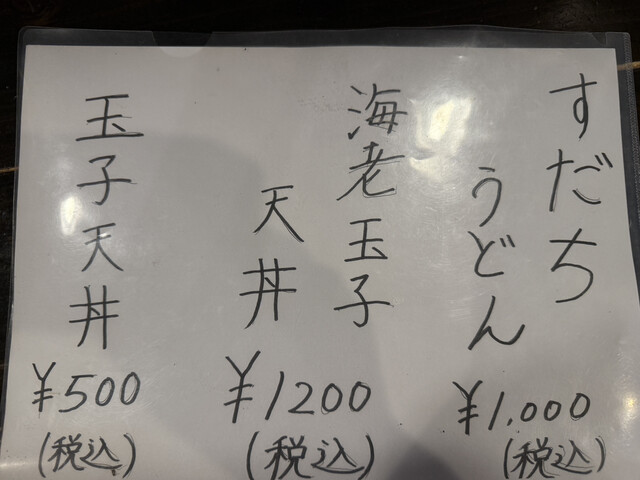 すだち
うどん
¥1,000
(税込)
海老玉子
天丼
¥1200
(税込)
玉子天丼
¥500
(税込)